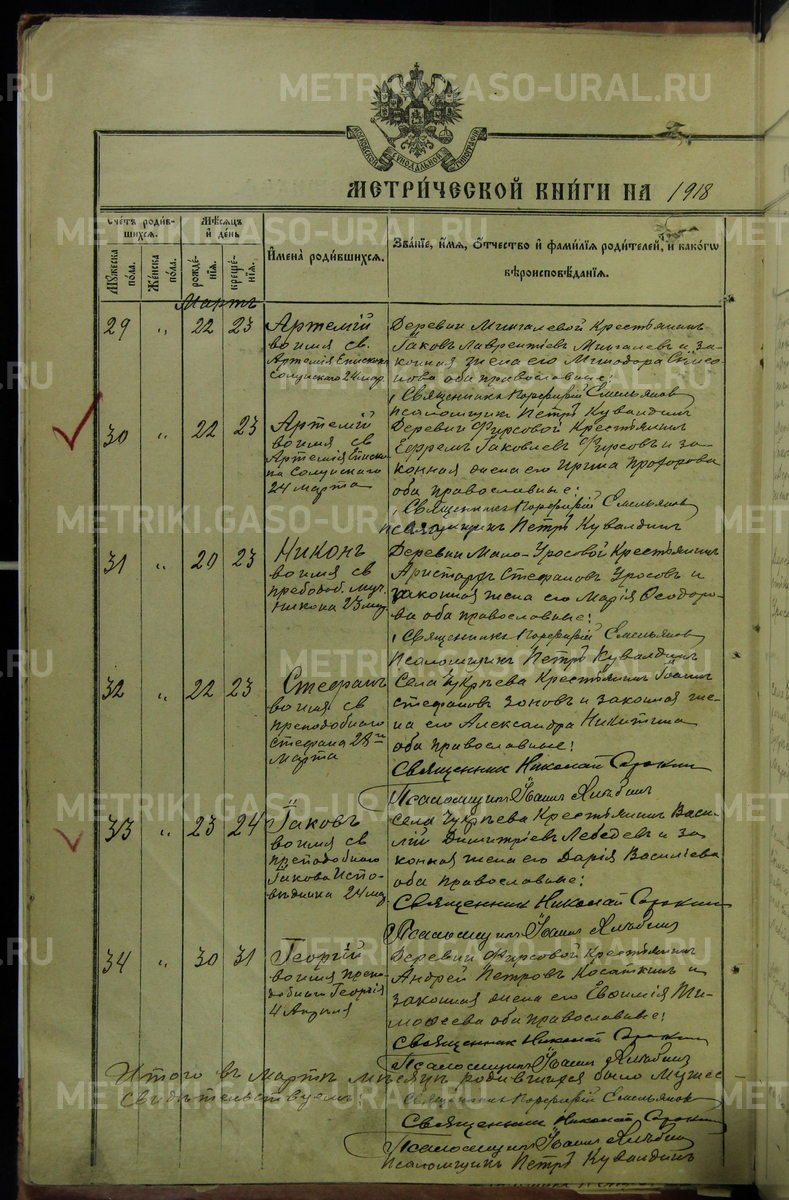 METRIKI.GASO-URAL.RU
МОСКОВСКОЙ СѴНОДАЛЬНОЙ ТИПОГРАФІИ
МЕТРИ́ЧЕСКОЙ КНИ́ГИ НА 1918
Счётъ роди́вшихся.
Му́жеска по́ла.
Же́нска по́ла.
Мѣ́сяцъ и҆ де́нь
рожде́нїѧ.
креще́нїѧ.
И҆мена̀ роди́вшихся.
Зва́нїе, и҆́мѧ, ѻ҆́тчество и҆ фами́лїѧ роди́телей, и҆ како́гѡ
вѣроисповѣ́данїѧ.
Мартъ
29 „ 22 23
Артемій
во имя св.
Артемія Епископа
Солунскаго 24 мар.
Деревни Мингалевой Крестьянинъ
Іаковъ Лаврентіевъ Мингалевъ и за-
конная жена его Минодора
оба православные:
Священникъ Порфирій Емельяновъ
Псаломщикъ Петръ Кувалдинъ
30 „ 22 23
Артемій
во имя св
Артемія Еписко-
па Солунскаго
24 марта
Деревни Фирсовой Крестьянинъ
Ефремъ Іаковлевъ Фирсовъ и за-
конная жена его Ирина Прохорова
оба православные:
Священникъ Порфирій Емельяновъ
Псаломщикъ Петръ Кувалдинъ
31 „ 20 23
Никонъ
во имя св
преподоб. муч.
Никона 23 мар.
Деревни Мало-Уросовой Крестьянинъ
Аристархъ Стефановъ Уросовъ и
законная жена его Марія Ѳеодоро-
ва оба православные:
Священникъ Порфирій Емельяновъ
Псаломщикъ Петръ Кувалдинъ
32 „ 22 23
Стефанъ
во имя св
преподобнаго
Стефана 28го
Марта
Села Чукрѣева Крестьянинъ Іоаннъ
Стефановъ Зоновъ и законная же-
на его Александра Никитина
оба православные:
Священник Николай
Псаломщикъ Іоаннъ
33 „ 23 24
Іаковъ
во имя св
преподобнаго
Іакова Испо-
вѣдника 24 мар
Села Чукрѣева Крестьянинъ Васи-
лій Димитріевъ Лебедевъ и за
конная жена его Дарія Василіева
оба православные:
Священник Николай
Псаломщикъ Іоаннъ
34 „ 30 31
Георгій
во имя препо-
добнаго Георгія
4 Апрѣля
Деревни Фирсовой Крестьянинъ
Андрей Петровъ Косаткинъ и
законная жена его Евѳимія Ти-
моѳеева оба православные:
Священник Николай
Псаломщикъ Іоаннъ
Итого въ Мартѣ мѣсяцѣ родившихся было мужес
Свидѣтельствуемъ:
Священникъ Порфирій Емельяновъ
Священник Николай
Псаломщикъ Іоаннъ
Псаломщикъ Петръ Кувалдинъ